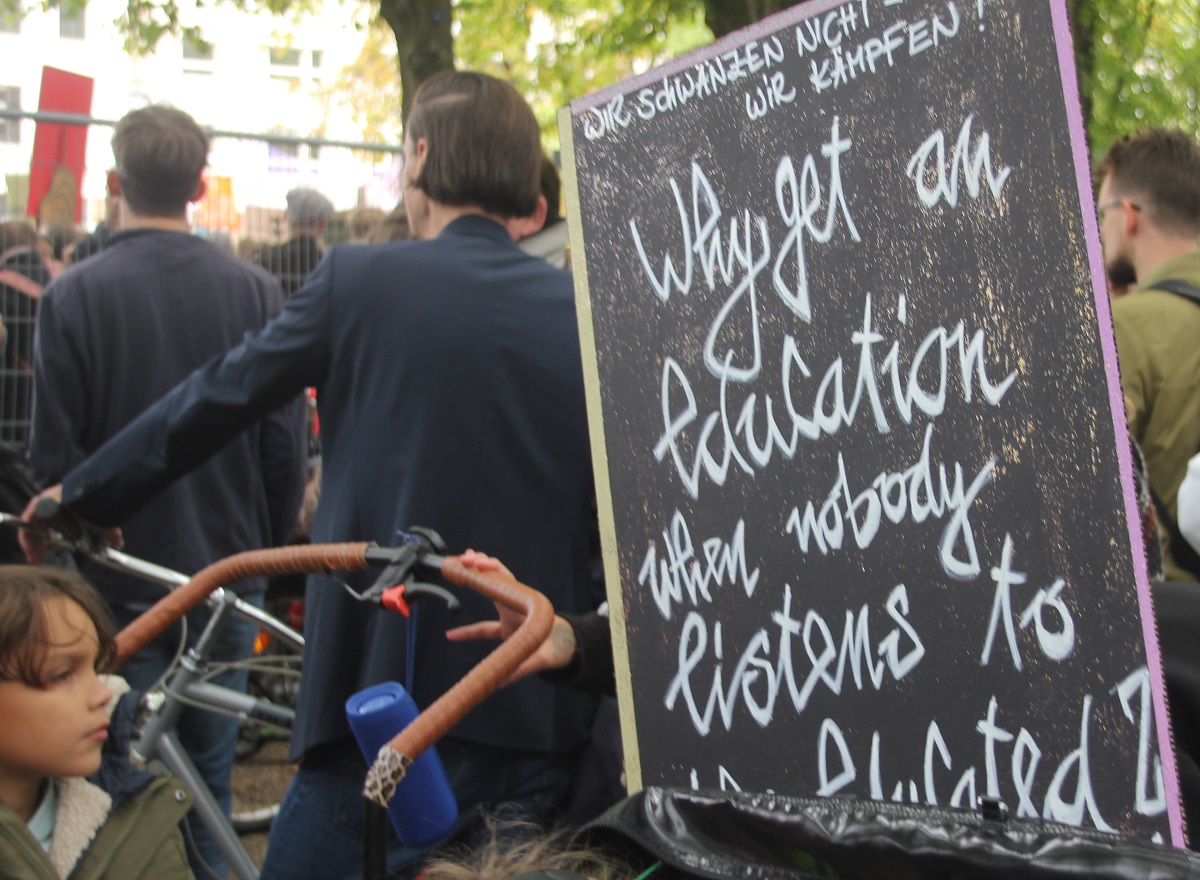 WIR SCHWÄNZEN NICHT -
WIR KÄMPFEN!
Why get an
Education
when nobody
listens to
the Educated?